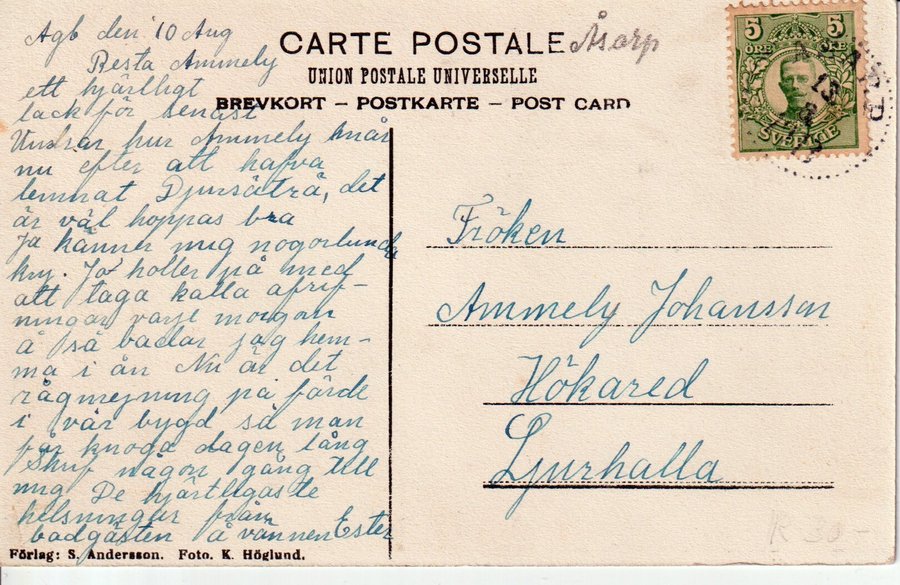 Agb den 10 Aug
Besta Ammely
ett hjärtligt
tack för senast
Undrar hur Ammely mår
nu efter att hafva
lemnat Djursätra, det
är väl hoppas bra
Ja känner mig nogorlunda
kry. Ja holler på med
att taga kalla afrif-
ningar varje morgon
å så badar jag hem-
ma i ån Nu är det
rågmejning på färde
i vår bygd så man
får knoga dagen lång
Skrif någon gång till
mig De hjärtligaste
helsningar från
badgästen å vännen Ester
Förlag: S. Andersson. Foto. K. Höglund.
CARTE POSTALE
Åsarp
UNION POSTALE UNIVERSELLE
BREVKORT – POSTKARTE – POST CARD
5 5
ÖRE ÖRE
SVERIGE
Fröken
Ammely Johansson
Hökared
Ljurhalla
R 50 -